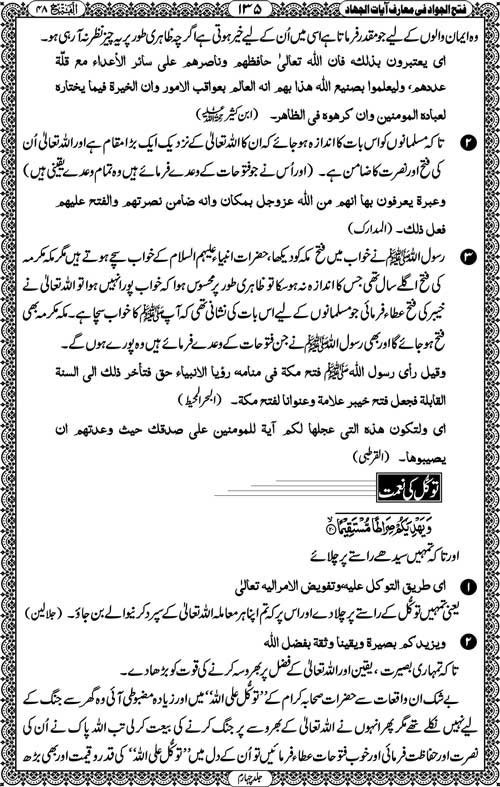 فتح الجواد فی معارف آیات الجهاد
۱۳۵
الفتح ۴۸
وہ ایمان والوں کے لیے جو مقدر فرماتا ہے اسی میں اُن کے لیے خیر ہوتی ہے اگرچہ ظاہری طور پر یہ چیز نظر نہ آرہی ہو۔
ای یعتبرون بذلك فان الله تعالىٰ حافظهم وناصرهم علی سائر الأعداء مع قلّة
عددهم، ولیعلموا بصنیع الله هذا بهم انه العالم بعواقب الامور وان الخیرة فیما یختاره
لعباده المومنین وان کرهوه فی الظاهر۔ (ابن کثیر رحمہ اللہ)
۲ تاکہ مسلمانوں کو اس بات کا اندازہ ہوجائے کہ ان کا اللہ تعالیٰ کے نزدیک ایک بڑا مقام ہے اور اللہ تعالیٰ اُن
کی فتح اور نصرت کا ضامن ہے۔ (اور اُس نے جو فتوحات کے وعدے فرمائے ہیں وہ تمام وعدے یقینی ہیں)
وعبرة یعرفون بها انهم من الله عزوجل بمکان وانه ضامن نصرتهم والفتح علیهم
فعل ذلك۔ (المدارک)
۳ رسول اللہ ﷺ نے خواب میں فتح مکہ کو دیکھا، حضرات انبیاء علیہم السلام کے خواب سچے ہوتے ہیں مگر مکہ مکرمہ
کی فتح اگلے سال تھی جس کا اندازہ نہ ہوسکا تو ظاہری طور پر محسوس ہوا کہ خواب پورا نہیں ہوا تو اللہ تعالیٰ نے
خیبر کی فتح عطاء فرمائی جو مسلمانوں کے لیے اس بات کی نشانی تھی کہ آپ ﷺ کا خواب سچا ہے۔ مکہ مکرمہ بھی
فتح ہوجائے گا اور بھی رسول اللہ ﷺ نے جن فتوحات کے وعدے فرمائے ہیں وہ پورے ہوں گے۔
وقیل رأی رسول الله ﷺ فتح مکة فی منامه، رؤیا الانبیاء حق فتأخر ذلك الی السنة
القابلة فجعل فتح خیبر علامة وعنوانا لفتح مکة۔ (البحر المحیط)
ای ولتکون هذه التی عجلها لکم آیة للمومنین علی صدقك حیث وعدتهم ان
یصیبوها۔ (القرطبی)
توکّل کی نعمت
وَيَهْدِيَكُمْ صِرَاطًا مُّسْتَقِيْمًا ۙ۲۰
اور تاکہ تمہیں سیدھے راستے پر چلائے
۱ ای طریق التوکل علیه وتفویض الامر الیه تعالیٰ
یعنی تمہیں توکّل کے راستے پر چلا دے اور اس پر کہ تم اپنا ہر معاملہ اللہ تعالیٰ کے سپرد کرنیوالے بن جاؤ۔ (جلالین)
۲ ویزیدکم بصیرة ویقینا وثقة بفضل الله
تاکہ تمہاری بصیرت، یقین اور اللہ تعالیٰ کے فضل پر بھروسہ کرنے کی قوت کو بڑھا دے۔
بے شک ان واقعات سے حضرات صحابہ کرام کے ’’توکل علی اللہ‘‘ میں اور زیادہ مضبوطی آئی وہ گھر سے جنگ کے
لیے نہیں نکلے تھے مگر پھر انہوں نے اللہ تعالیٰ کے بھروسے پر جنگ کرنے کی بیعت کرلی تب اللہ پاک نے اُن کی
نصرت اور حفاظت فرمائی اور خوب فتوحات عطاء فرمائیں تو اُن کے دل میں ’’توکل علی اللہ‘‘ کی قدر و قیمت اور بھی بڑھ
جلد چہارم